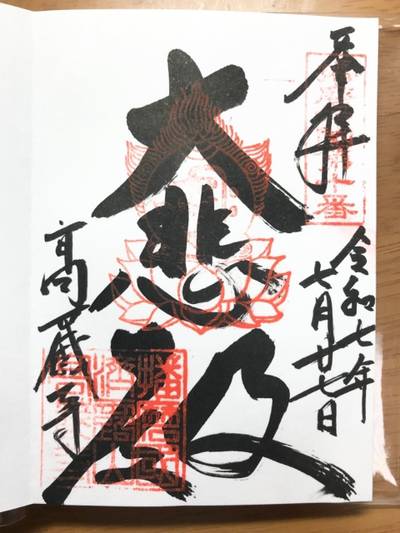 奉拝
令和七年
七月廿七日
大悲殿
高蔵寺